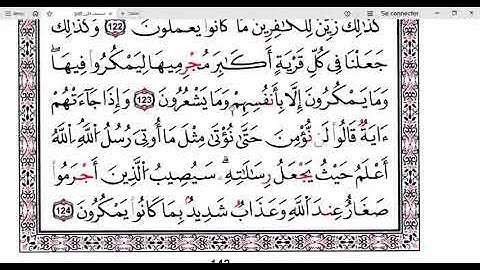 Se connecter
كَذَٰلِكَ زُيِّنَ لِلْكَٰفِرِينَ مَا كَانُوا۟ يَعْمَلُونَ ١٢٢ وَكَذَٰلِكَ
جَعَلْنَا فِى كُلِّ قَرْيَةٍ أَكَٰبِرَ مُجْرِمِيهَا لِيَمْكُرُوا۟ فِيهَا ۖ
وَمَا يَمْكُرُونَ إِلَّا بِأَنفُسِهِمْ وَمَا يَشْعُرُونَ ١٢٣ وَإِذَا جَآءَتْهُمْ
ءَايَةٌ قَالُوا۟ لَن نُّؤْمِنَ حَتَّىٰ نُؤْتَىٰ مِثْلَ مَآ أُوتِىَ رُسُلُ ٱللَّهِ ۘ ٱللَّهُ
أَعْلَمُ حَيْثُ يَجْعَلُ رِسَالَٰتِهِۦ ۗ سَيُصِيبُ ٱلَّذِينَ أَجْرَمُوا۟
صَغَارٌ عِندَ ٱللَّهِ وَعَذَابٌ شَدِيدٌۢ بِمَا كَانُوا۟ يَمْكُرُونَ ١٢٤